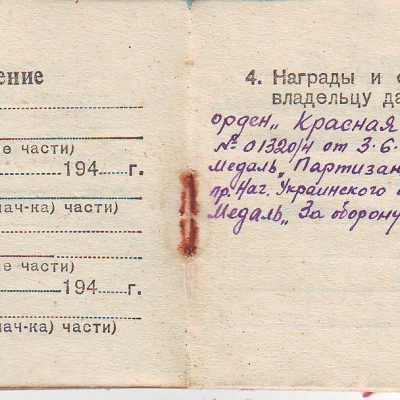 ение
е части)
194 г.
ач-ка) части)
е части)
194 г.
ач-ка) части)
4. Награды и
владельцу да
орден „Красная
№ 01320/4 от 3.6.
Медаль „Партизан
пр. Наг. Украинского
Медаль „За оборону